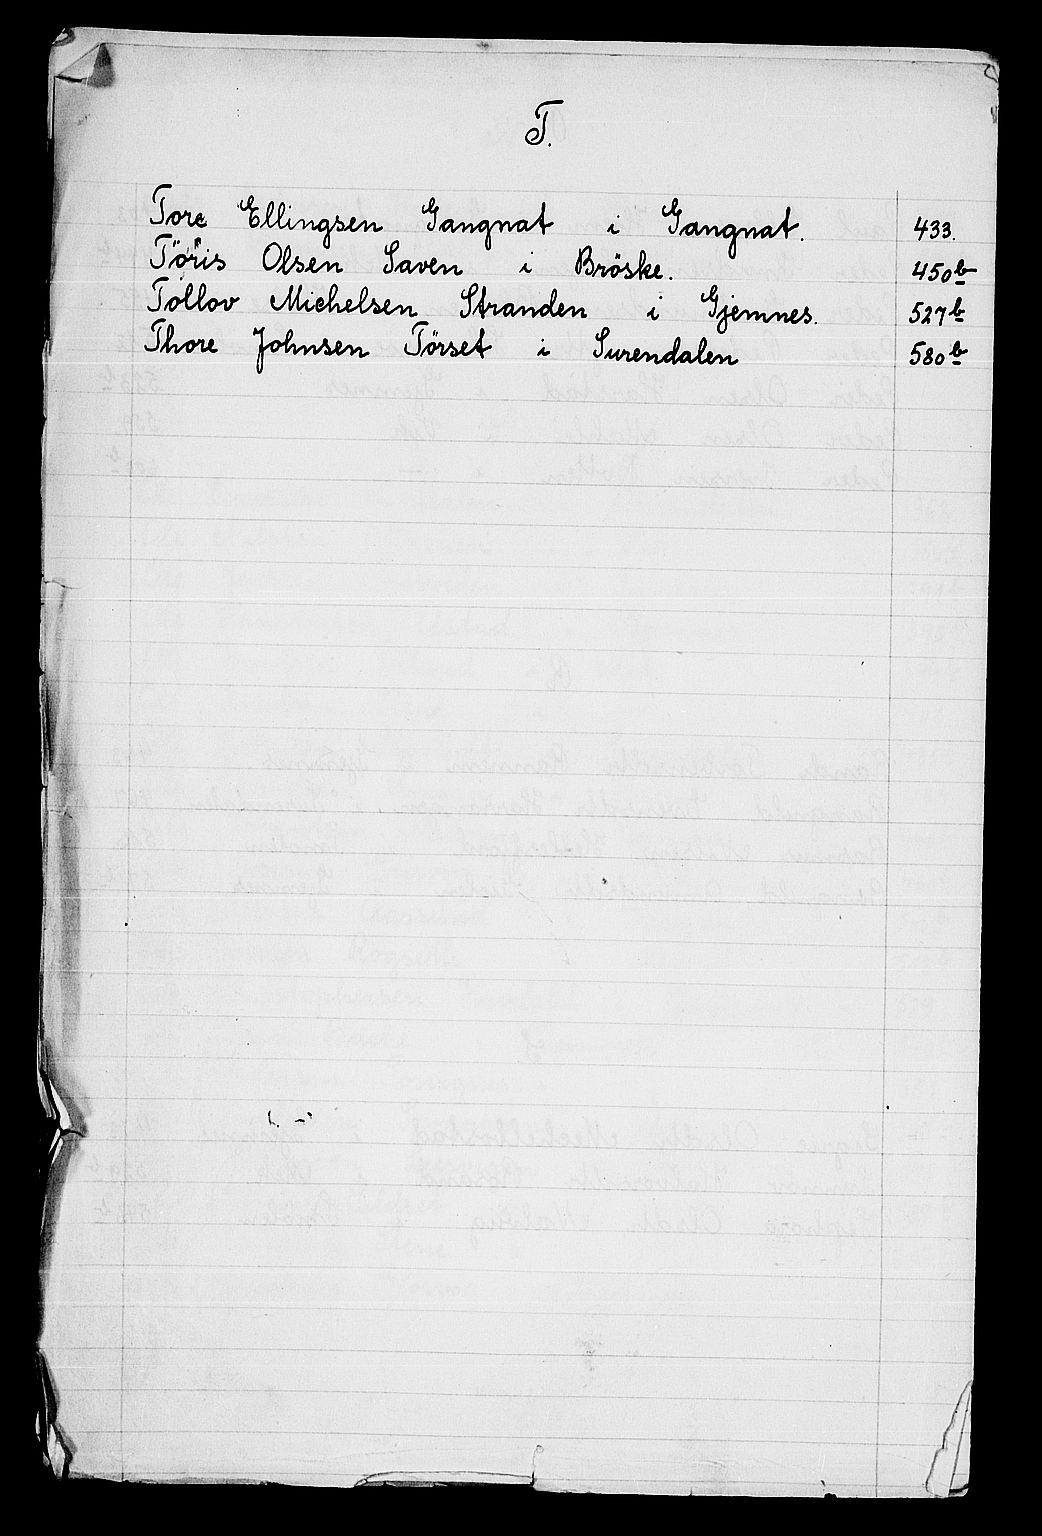 T.
Tore Ellingsen Gangnat i Gangnat. 433.
Töris Olsen Saven i Bröske. 450 b
Tollov Michelsen Stranden i Gjemnes. 527 b
Thore Johnsen Törset i Surendalen 580 b